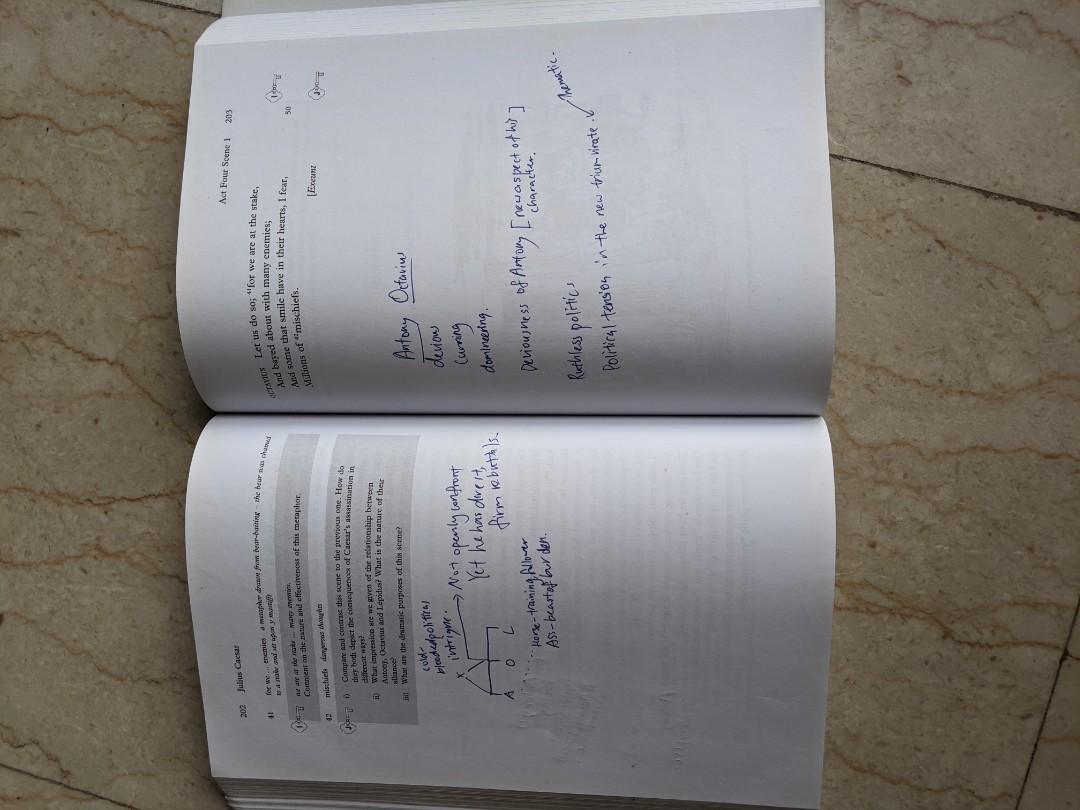 202 Julius Caesar
41 for we ... enemies a metaphor drawn from bear-baiting – the bear was chained
to a stake and set upon y mastiffs
we are at the stake ... many enemies.
Comment on the nature and effectiveness of this metaphor.
42 mischiefs dangerous thoughts
i) Compare and contrast this scene to the previous one. How do
they both depict the consequences of Caesar's assassination in
different ways?
ii) What impression are we given of the relationship between
Antony, Octavius and Lepidus? What is the nature of their
alliance?
iii) What are the dramatic purposes of this scene?
cold-
bleeded political
intrigue.
x
→ Not openly confront
Yet he has direct,
firm rebuttals.
A O L
Horse-training, follower
Ass-beast of burden.
Act Four Scene 1 203
OCTAVIUS Let us do so; 41for we are at the stake,
And bayed about with many enemies;
And some that smile have in their hearts, I fear,
Millions of 42mischiefs. 50
[Exeunt
Antony Octavius
devious
Cunning
domineering.
Deviousness of Antony [new aspect of his]
character.
Ruthless politics
Political tension in the new triumvirate. Thematic.